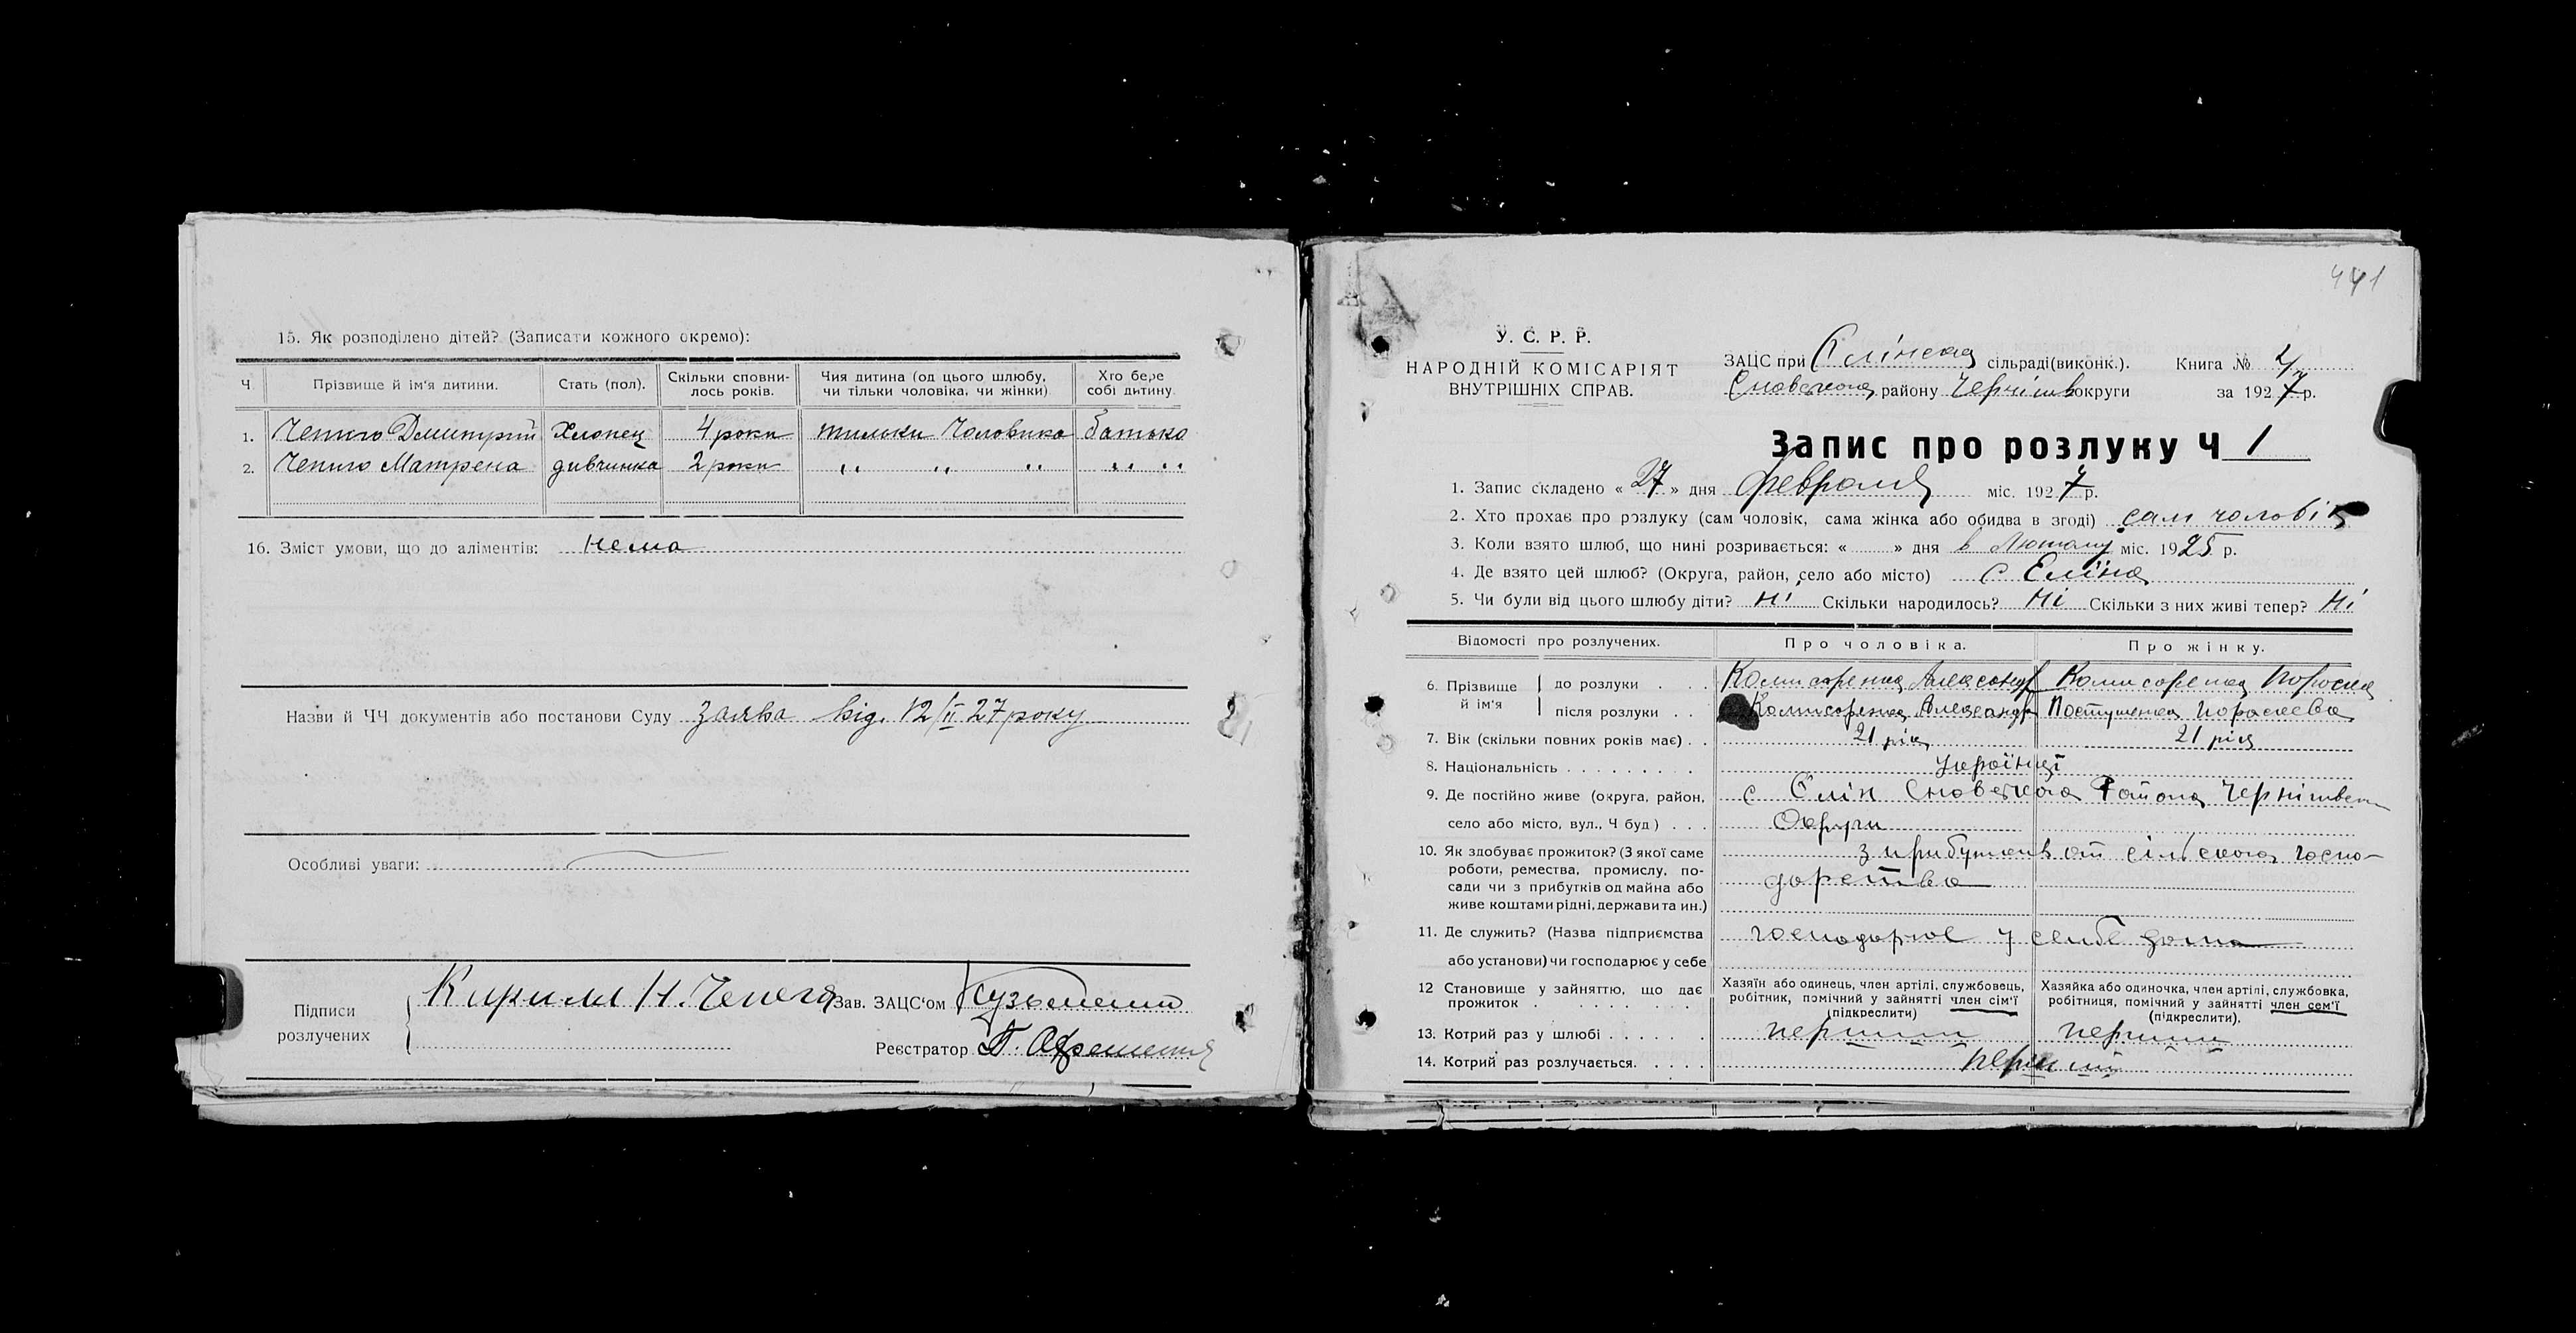 15. Як розподілено дітей? (Записати кожного окремо):
Ч. Прізвище й ім'я дитини. Стать (пол). Скільки сповнилось років. Чия дитина (од цього шлюбу, чи тільки чоловіка, чи жінки) Хто бере собі дитину.
1. Дмитрий Хлопец 4 роки тильки Чоловика батько
2. Матрена дивчинка 2 роки ,, ,, ,, ,, ,,
16. Зміст умови, що до аліментів: нема
Назви й ЧЧ документів або постанови Суду заява від. 12/II 27 року
Особливі уваги:
Підписи розлучених
Кирилл Н. Чепега Зав. ЗАЦС'ом
Реєстратор
441
У. С. Р. Р.
НАРОДНІЙ КОМІСАРІЯТ
ВНУТРІШНІХ СПРАВ.
ЗАЦС при Єлінской сільраді (виконк.). Книга №
Сновского району Чернігів округи за 1927 р.
Запис про розлуку Ч 1
1. Запис складено « 27 » дня февраля міс. 1927 р.
2. Хто прохає про розлуку (сам чоловік, сама жінка або обидва в згоді) сам чоловік
3. Коли взято шлюб, що нині розривається: « » дня в Лютому міс. 1925 р.
4. Де взято цей шлюб? (Округа, район, село або місто) с Еліна
5. Чи були від цього шлюбу діти? Ні Скільки народилось? Ні Скільки з них живі тепер? Ні
Відомості про розлучених. Про чоловіка. Про жінку.
6. Прізвище й ім'я
до розлуки
після розлуки
7. Вік (скільки повних років має) 21 рік 21 рік
8. Національність українці
9. Де постійно живе (округа, район, с Єлін Сновского Района Чернігівск
село або місто, вул., Ч буд) Округи
10. Як здобуває прожиток? (З якої саме з прибутків от сільского госпо-
роботи, ремества, промислу, по-
сади чи з прибутків од майна або дарства
живе коштами рідні, держави та ин.)
11. Де служить? (Назва підприємства господарює у себе дома
або установи) чи господарює у себе
12 Становище у зайняттю, що дає прожиток
Хазяїн або одинець, член артілі, службовець, робітник, помічний у зайнятті член сім'ї (підкреслити)
Хазяйка або одиночка, член артілі, службовка, робітниця, помічний у зайнятті член сем'ї (підкреслити).
13. Котрий раз у шлюбі перший перший
14. Котрий раз розлучається. перший